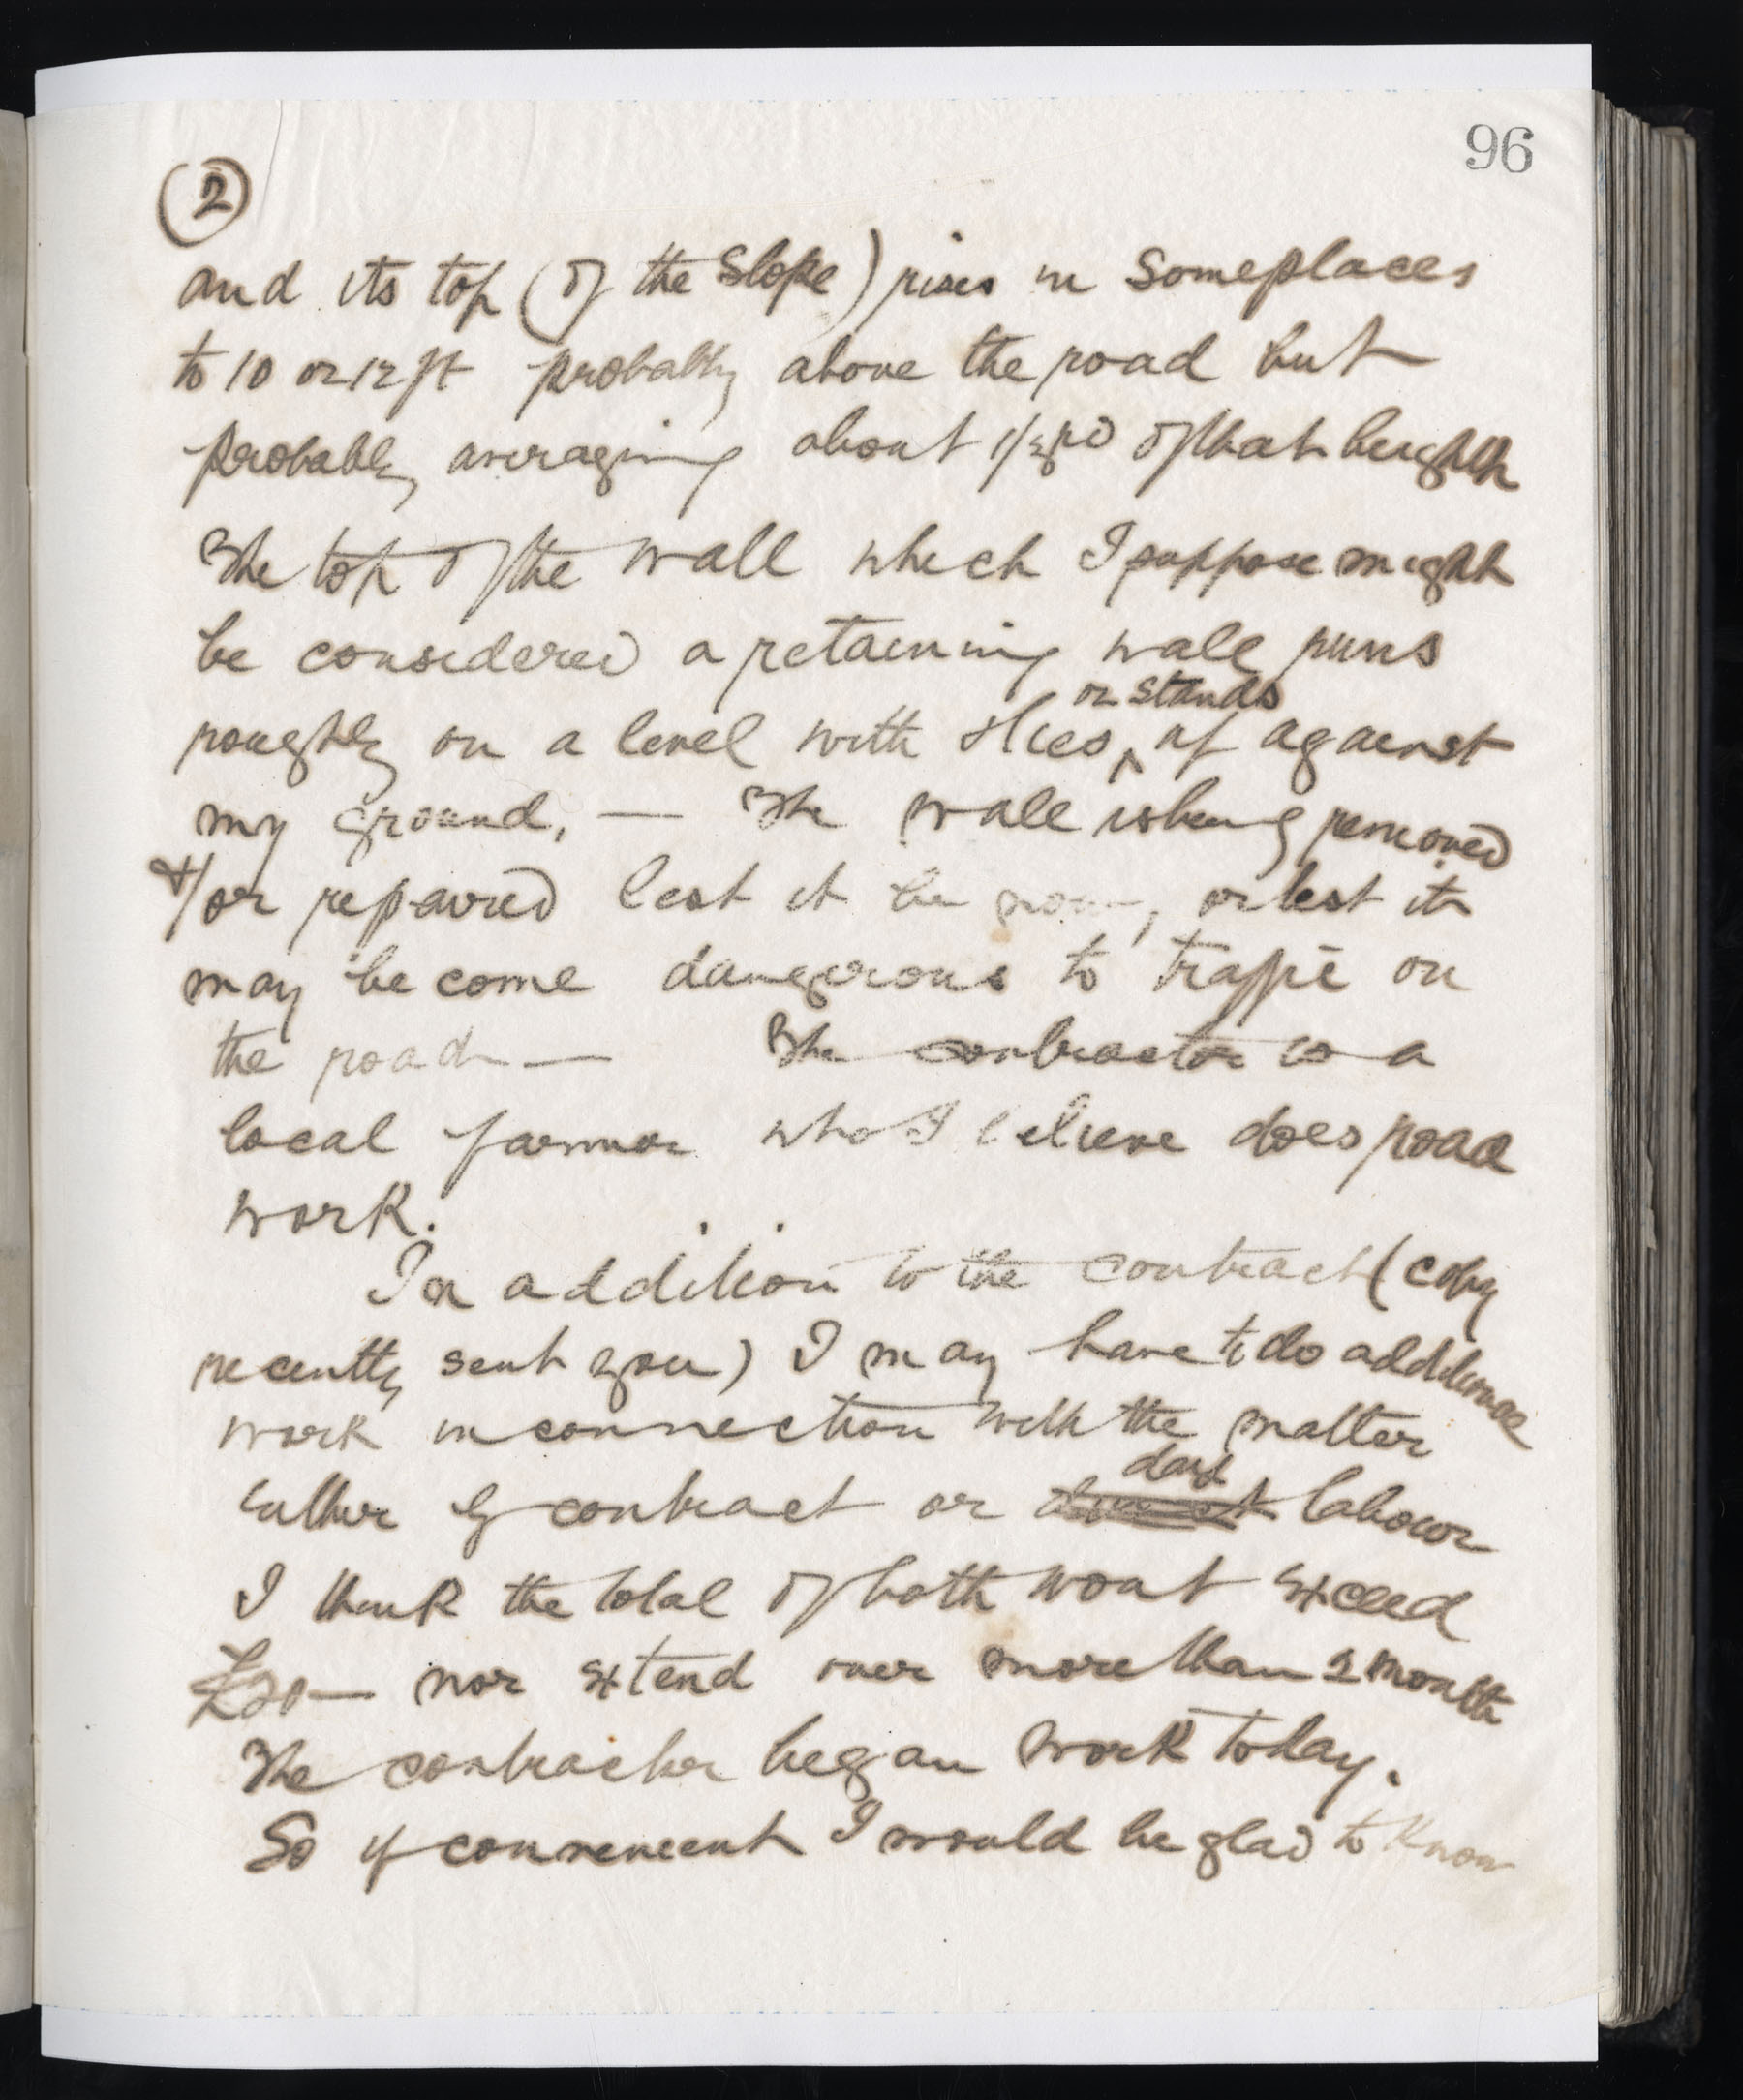 96
(2)
and its top (of the Slope) rises in Someplaces
to 10 or 12 ft probably above the road but
probably averaging about 1/3rd of that heighth
The top of the wall which I suppose might
be considered a retaining wall runs
or stands
roughly on a level with & lies ^ up against
my ground, — The wall is being removed
&/or repaired lest it be now, or lest it
may become dangerous to traffic on
the road — The contractor is a
local farmer who I believe does road
work.
In addition to the contract (copy
recently sent you) I may have to do additional
work in connection with the matter
day
either by contract or labour
I think the total of both wont exceed
nor extend over more than 2 month
The contractor began work today.
So if convenient I would be glad to know